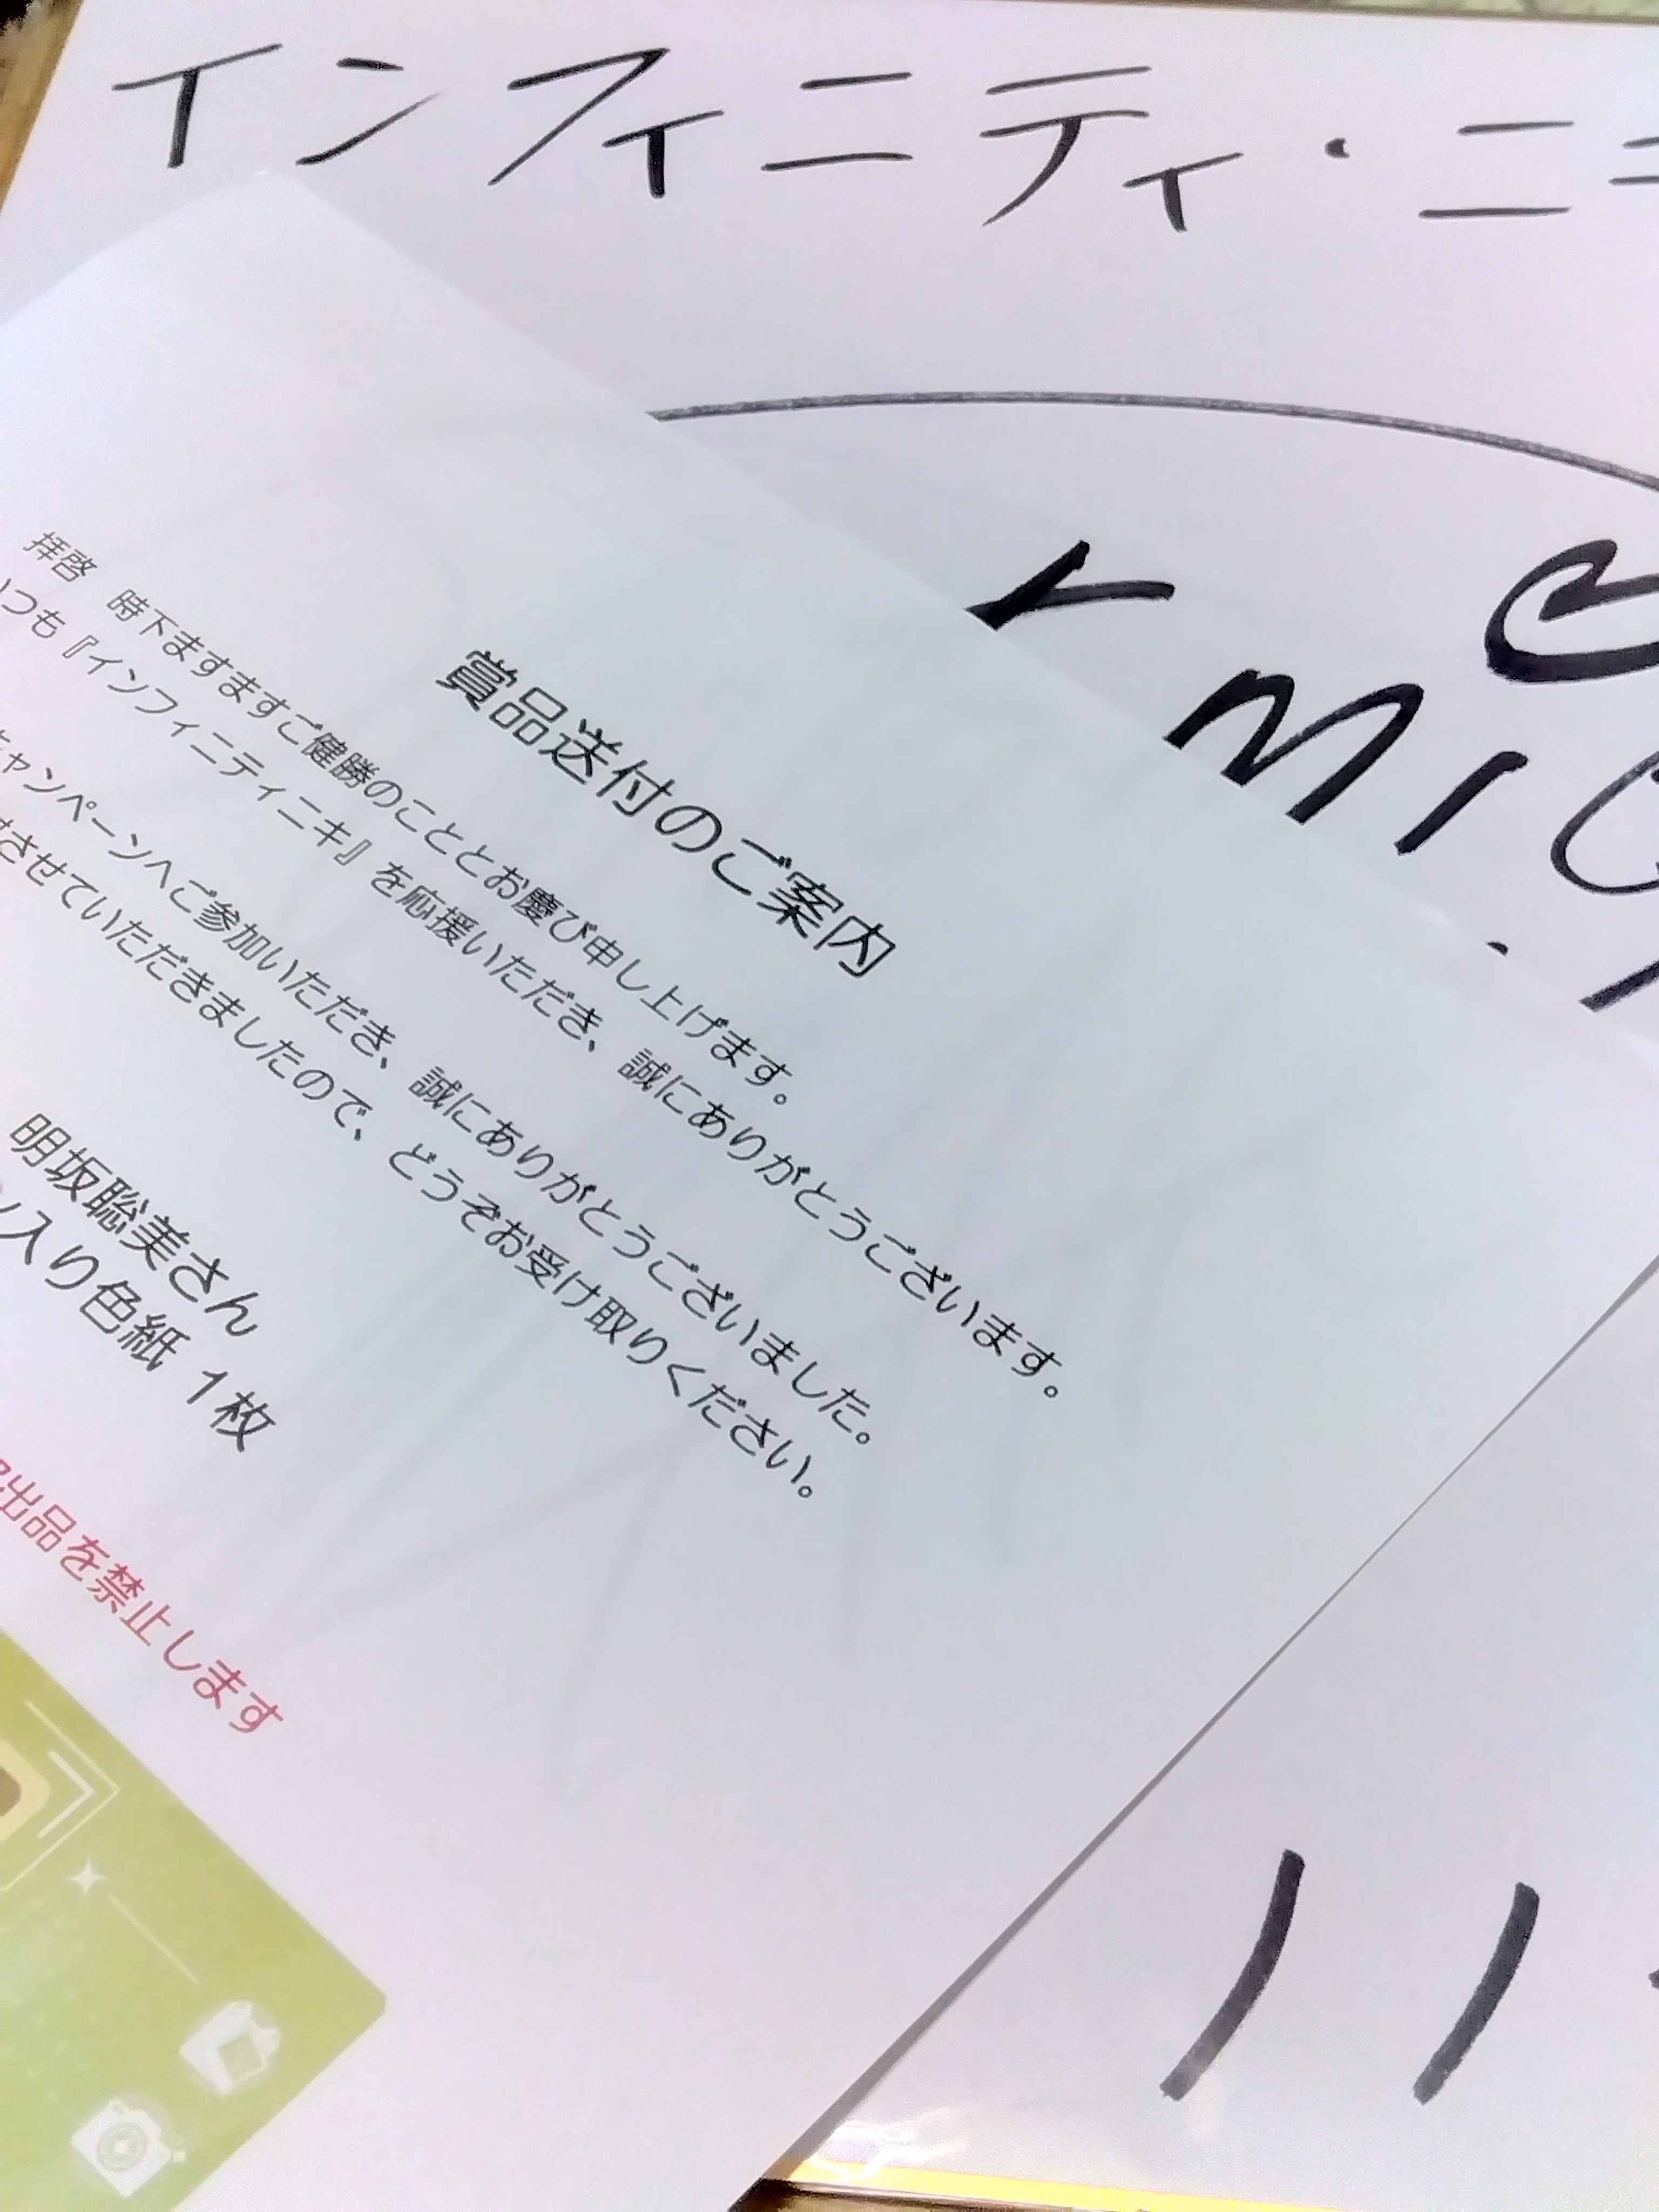 インフィニティ・ニ
賞品送付のご案内
拝啓 時下ますますご健勝のこととお慶び申し上げます。
つも『インフィニティニキ』を応援いただき、誠にありがとうございます。
キャンペーンへご参加いただき、誠にありがとうございました。
させていただきましたので、どうぞお受け取りください。
明坂聡美さん
入り色紙 1枚
出品を禁止します